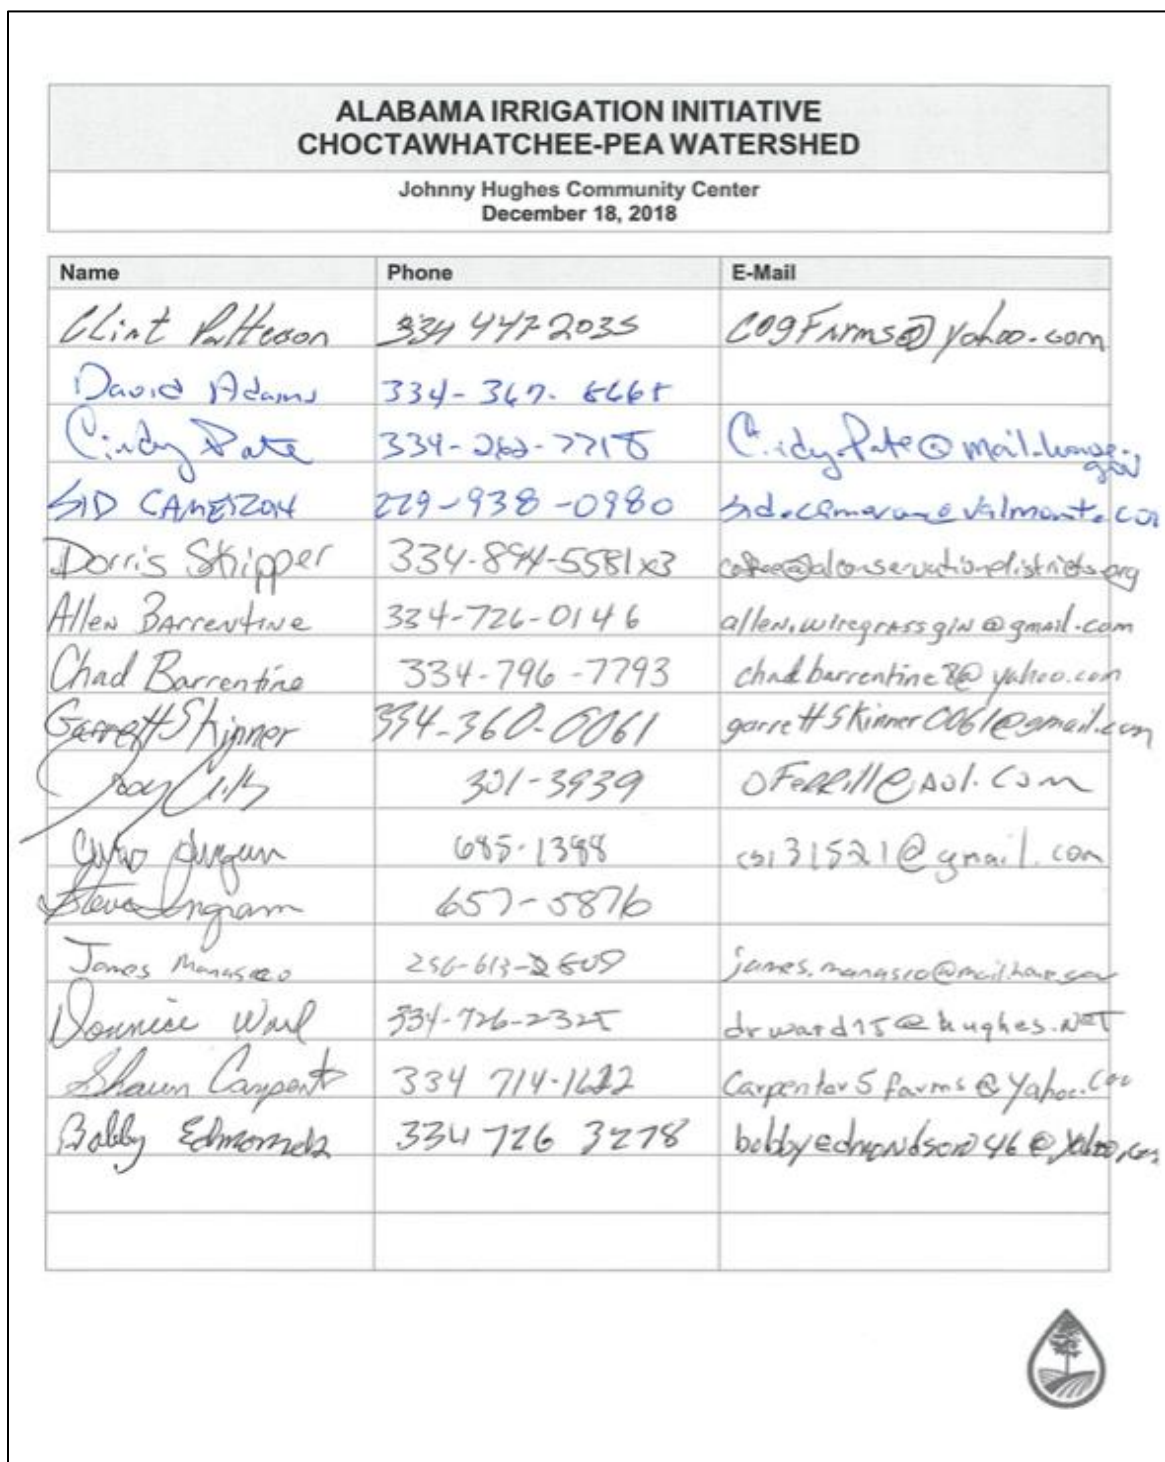 ALABAMA IRRIGATION INITIATIVE
CHOCTAWHATCHEE-PEA WATERSHED
Johnny Hughes Community Center
December 18, 2018
Name Phone E-Mail
Clint Patterson 334 447 2035 COgFarms@yahoo.com
David Adams 334-367-
Cindy Pate 334-262-7718 Cindy.Pate@mail.house.gov
SID CAMERON 229-938-0980 sid.cameron@valmont.com
Dorris Skipper 334-894-5581x3 coffee@alconservationdistricts.org
Allen Barrentine 334-726-0146 allen.wiregrassgin@gmail.com
Chad Barrentine 334-796-7793 chadbarrentine8@yahoo.com
Garrett Skinner 334-360-0061 garrettskinner0061@gmail.com
301-3939 OFerrill@Aol.Com
685-1388 csi31521@gmail.com
Steve Ingram 657-5876
James Manasco 256-613- james.manasco@mail.house.gov
Donnice Ward 334-726-2325 drward15@hughes.NET
Shaun Carpent 334 714-1622 Carpenter5farms@Yahoo.Com
Bobby Edmondson 334 726 3278 bobbyedmondson46@yahoo.com